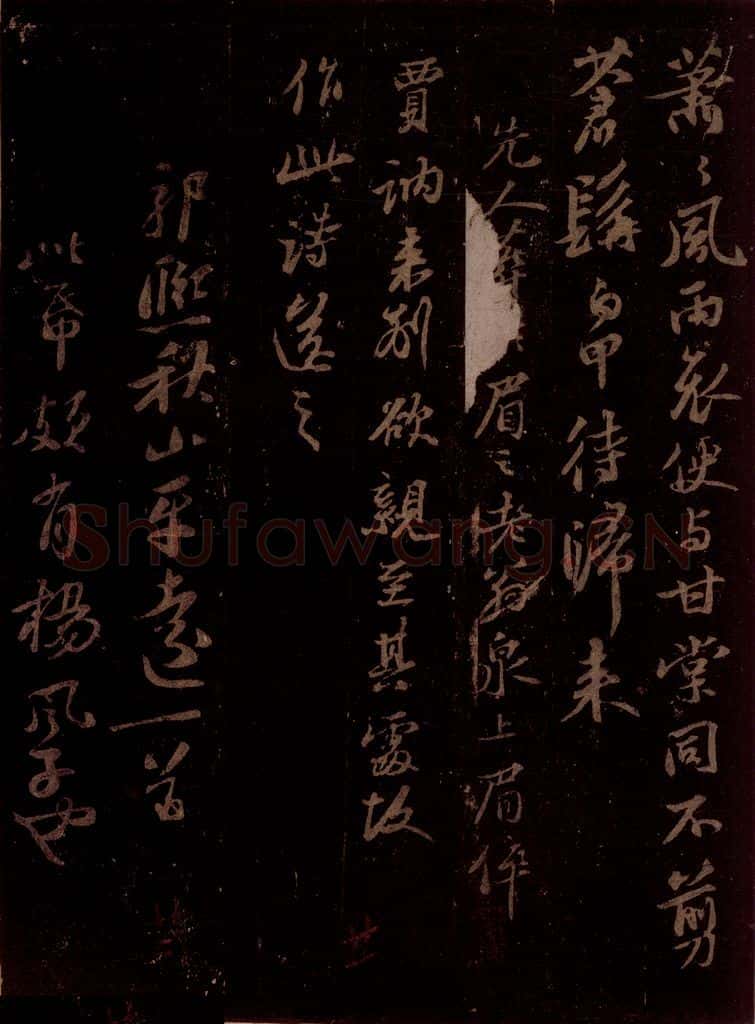 蕭〻風雨哀便与甘棠同不剪
蒼髯白甲待歸来
先人葬眉〻老翁泉上眉倅
賈訥来别欲親至其處故
作此詩送之
郭熙秋山平遠一首
此帋頗有楊風子也
Shufawang.CN